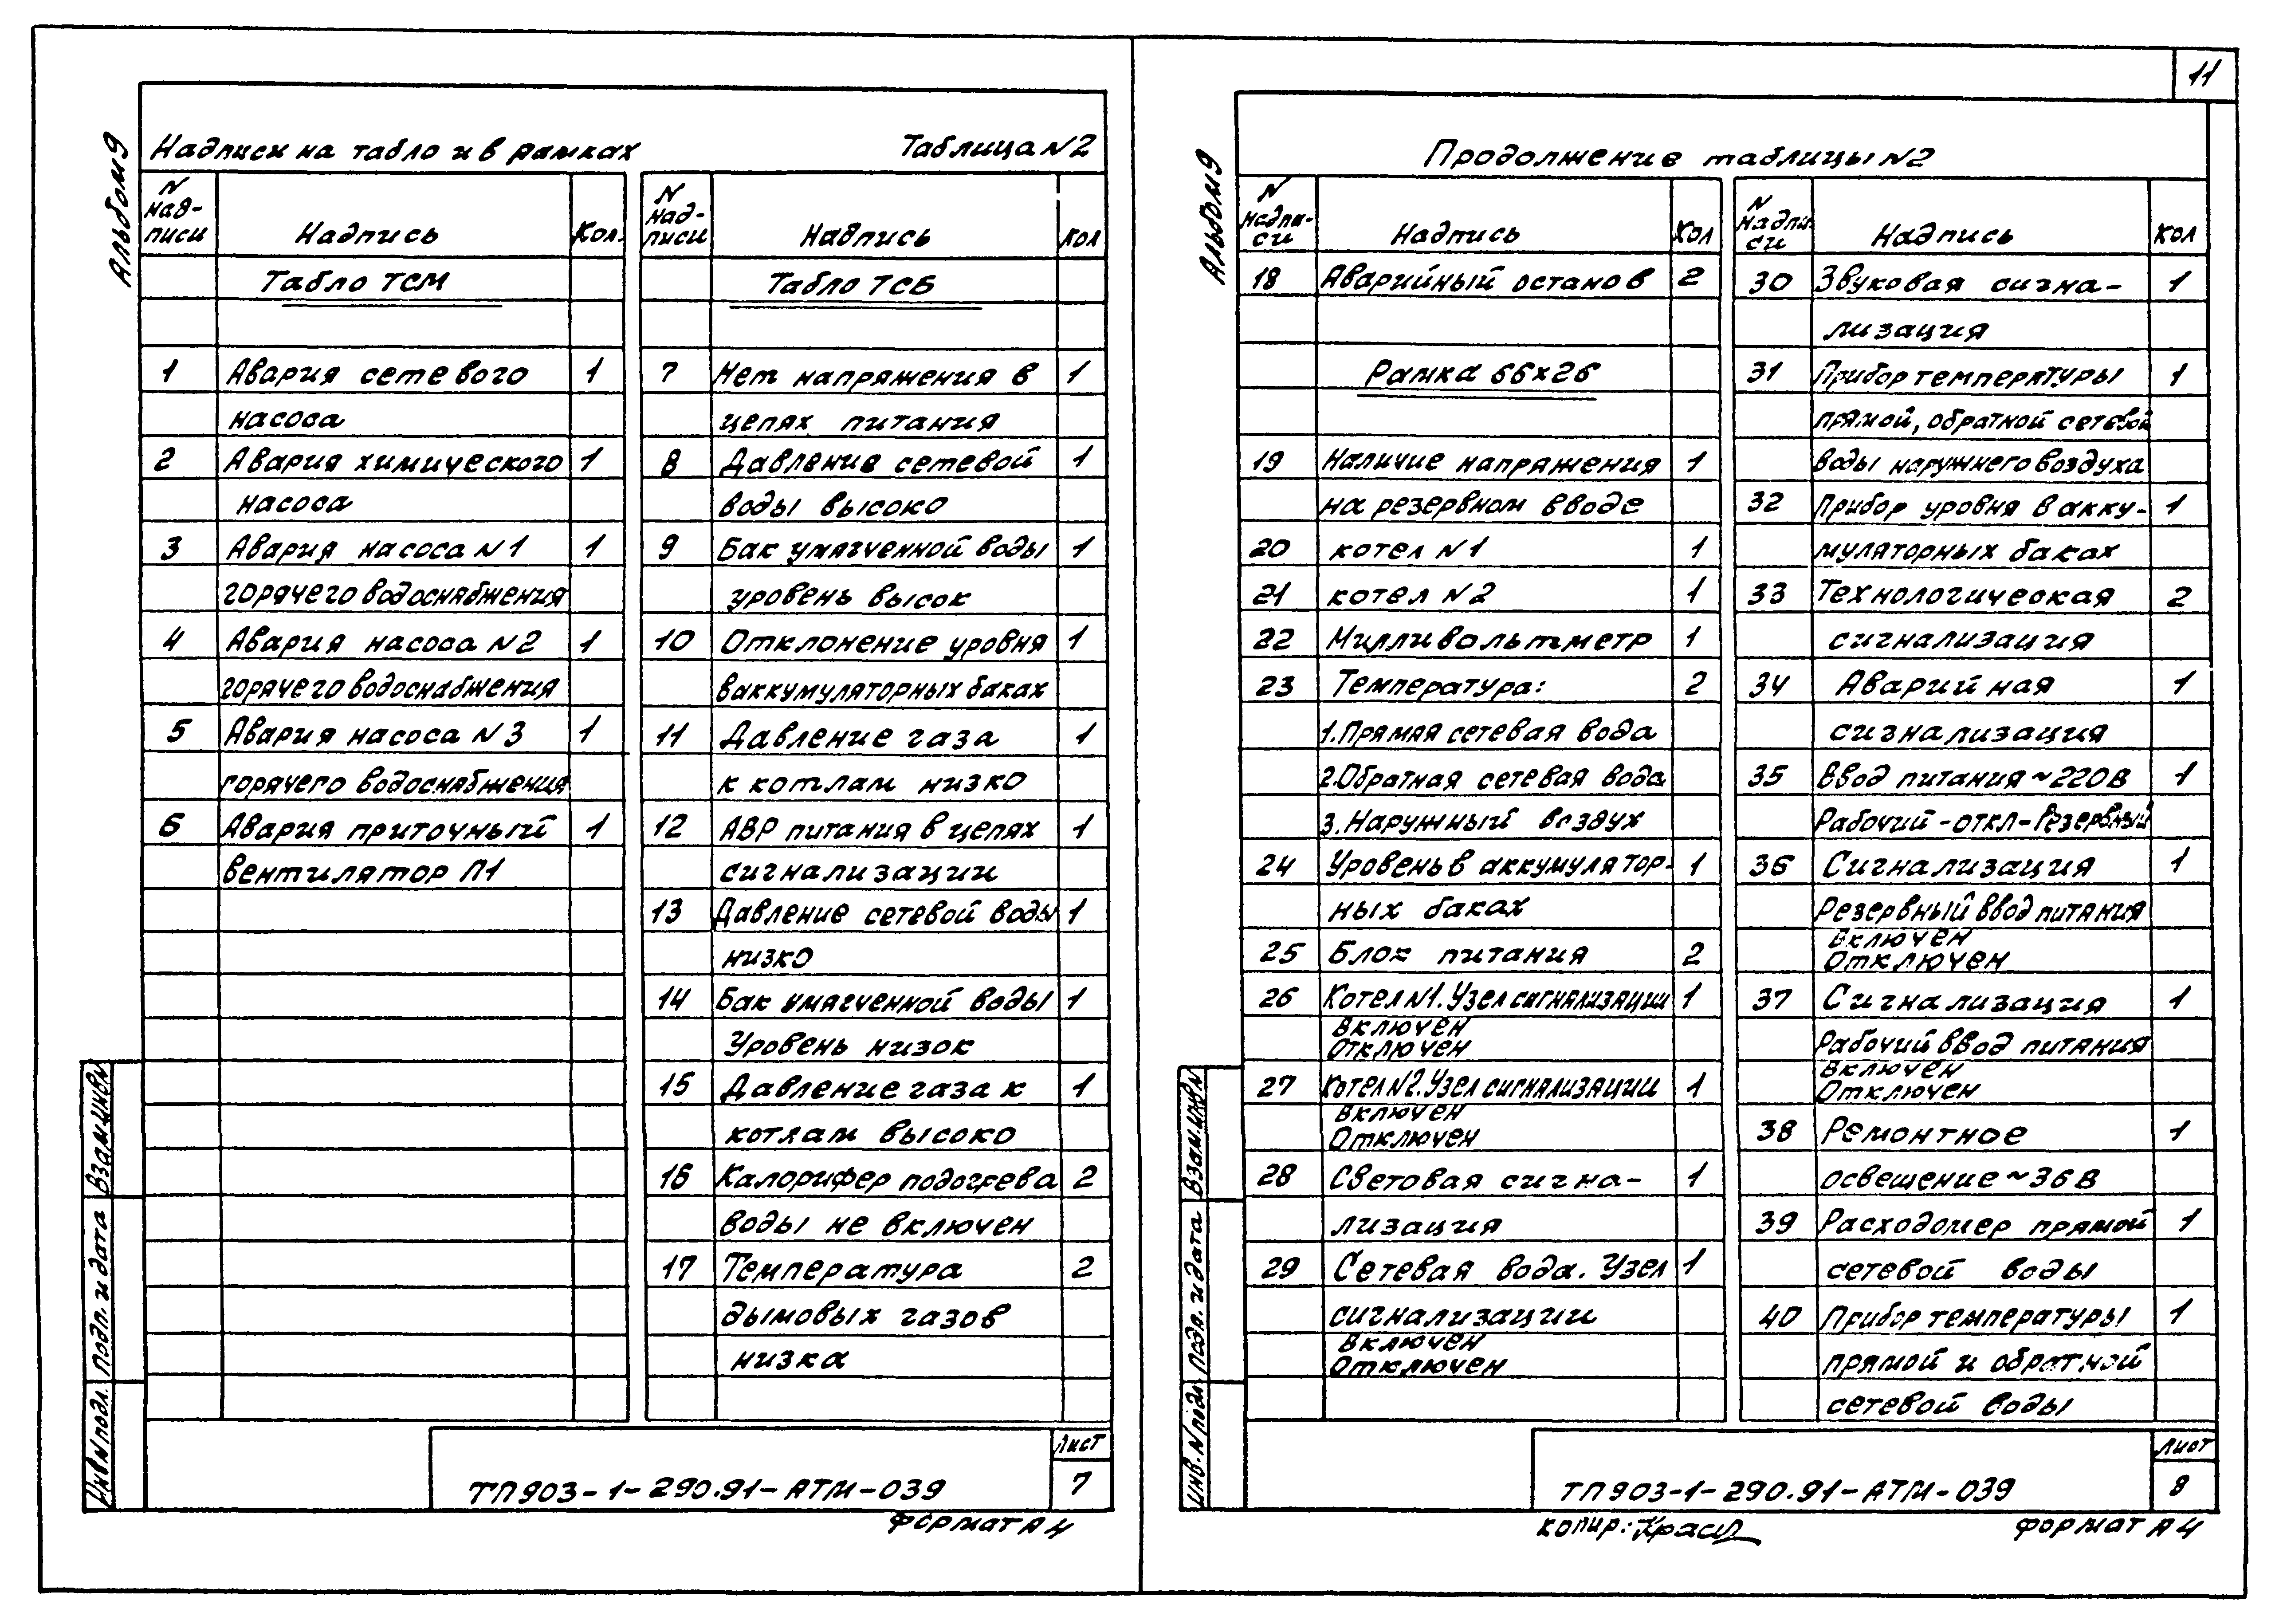 11
Альбом 9
Надписи на табло и в рамках
Таблица N2
N над-писи Надпись Кол.
Табло ТСМ
1 Авария сетевого 1
насоса
2 Авария химического 1
насоса
3 Авария насоса N1 1
горячего водоснабжения
4 Авария насоса N2 1
горячего водоснабжения
5 Авария насоса N3 1
горячего водоснабжения
6 Авария приточный 1
вентилятор П1
N над-писи Надпись Кол
Табло ТСБ
7 Нет напряжения в 1
цепях питания
8 Давление сетевой 1
воды высоко
9 Бак умягченной воды 1
уровень высок
10 Отклонение уровня 1
в аккумуляторных баках
11 Давление газа 1
к котлам низко
12 АВР питания в цепях 1
сигнализации
13 Давление сетевой воды 1
низко
14 Бак умягченной воды 1
Уровень низок
15 Давление газа к 1
котлам высоко
16 Калорифер подогрева 2
воды не включен
17 Температура 2
дымовых газов
низка
Взам.инв.N
Подп. и дата
Инв.N подл.
ТП903-1-290.91-АТМ-039
Лист
7
Формат А4
Альбом 9
Продолжение таблицы N2
N надпи-си Надпись Кол
18 Аварийный останов 2
Рамка 66х26
19 Наличие напряжения 1
на резервном вводе
20 котел N1 1
21 котел N2 1
22 Милливольтметр 1
23 Температура: 2
1.Прямая сетевая вода
2.Обратная сетевая вода
3.Наружный воздух
24 Уровень в аккумулятор- 1
ных баках
25 Блок питания 2
26 Котел N1. Узел сигнализации 1
Включен
Отключен
27 Котел N2. Узел сигнализации 1
Включен
Отключен
28 Световая сигна- 1
лизация
29 Сетевая вода. Узел 1
сигнализации
Включен
Отключен
N надпи-си Надпись Кол
30 Звуковая сигна- 1
лизация
31 Прибор температуры 1
прямой, обратной сетевой
воды наружнего воздуха
32 Прибор уровня в акку- 1
муляторных баках
33 Технологическая 2
сигнализация
34 Аварийная 1
сигнализация
35 Ввод питания ~220В 1
Рабочий-откл-Резервный
36 Сигнализация 1
Резервный ввод питания
Включен
Отключен
37 Сигнализация 1
Рабочий ввод питания
Включен
Отключен
38 Ремонтное 1
освещение ~36В
39 Расходомер прямой 1
сетевой воды
40 Прибор температуры 1
прямой и обратной
сетевой воды
Взам.инв.N
Подп. и дата
Инв.N подл.
ТП903-1-290.91-АТМ-039
Лист
8
копир:
Формат А4